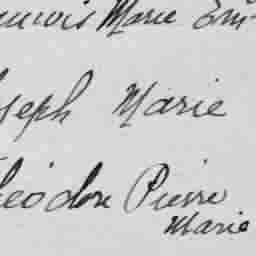 Marie Em
seph Marie
héodore Pierre
Marie